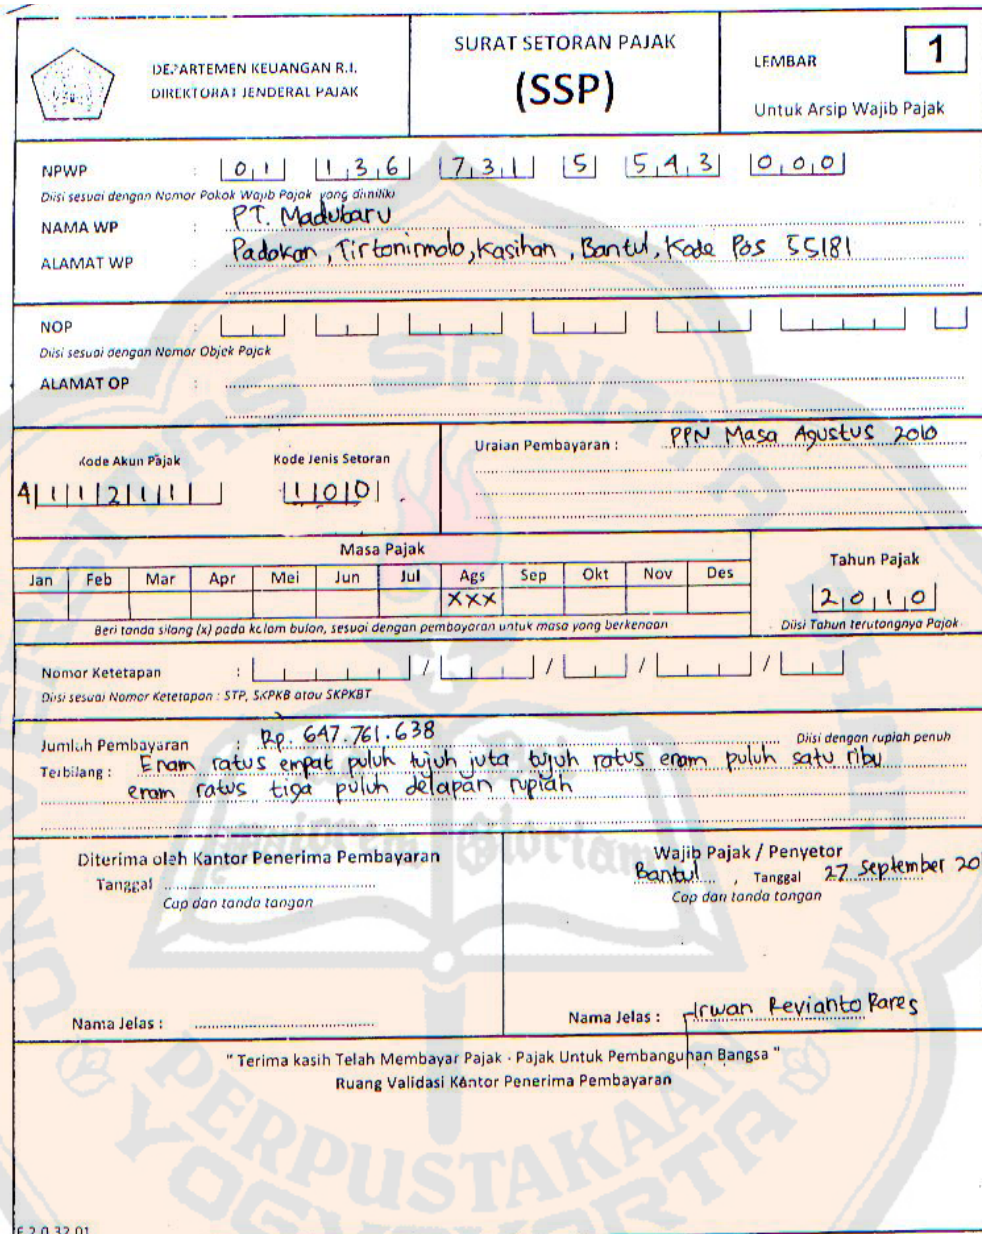 DEPARTEMEN KEUANGAN R.I.
DIREKTORAT JENDERAL PAJAK
SURAT SETORAN PAJAK
(SSP)
LEMBAR 1
Untuk Arsip Wajib Pajak
NPWP : 01 136 731 5 543 000
Diisi sesuai dengan Nomor Pokok Wajib Pajak yang dimiliki
NAMA WP : PT. Madubaru
ALAMAT WP : Padokan, Tirtonirmolo, Kasihan, Bantul, Kode Pos 55181
NOP :
Diisi sesuai dengan Nomor Objek Pajak
ALAMAT OP :
Kode Akun Pajak Kode Jenis Setoran
411211 100
Uraian Pembayaran : PPN Masa Agustus 2010
Masa Pajak
Jan Feb Mar Apr Mei Jun Jul Ags Sep Okt Nov Des
XXX
Beri tanda silang (x) pada kolom bulan, sesuai dengan pembayaran untuk masa yang berkenaan
Tahun Pajak
2010
Diisi Tahun terutangnya Pajak
Nomor Ketetapan : / / / /
Diisi sesuai Nomor Ketetapan : STP, SKPKB atau SKPKBT
Jumlah Pembayaran : Rp. 647.761.638 Diisi dengan rupiah penuh
Terbilang : Enam ratus empat puluh tujuh juta tujuh ratus enam puluh satu ribu
enam ratus tiga puluh delapan rupiah
Diterima oleh Kantor Penerima Pembayaran
Tanggal
Cap dan tanda tangan
Nama Jelas :
Wajib Pajak / Penyetor
Bantul, Tanggal 27 September 20
Cap dan tanda tangan
Nama Jelas : Irwan Revianto Rares
" Terima kasih Telah Membayar Pajak - Pajak Untuk Pembangunan Bangsa "
Ruang Validasi Kantor Penerima Pembayaran
F.2.0.32.01
UNIVERSITAS SANATA DHARMA
Ad Maiorem Dei Gloriam
PERPUSTAKAAN
YOGYAKARTA